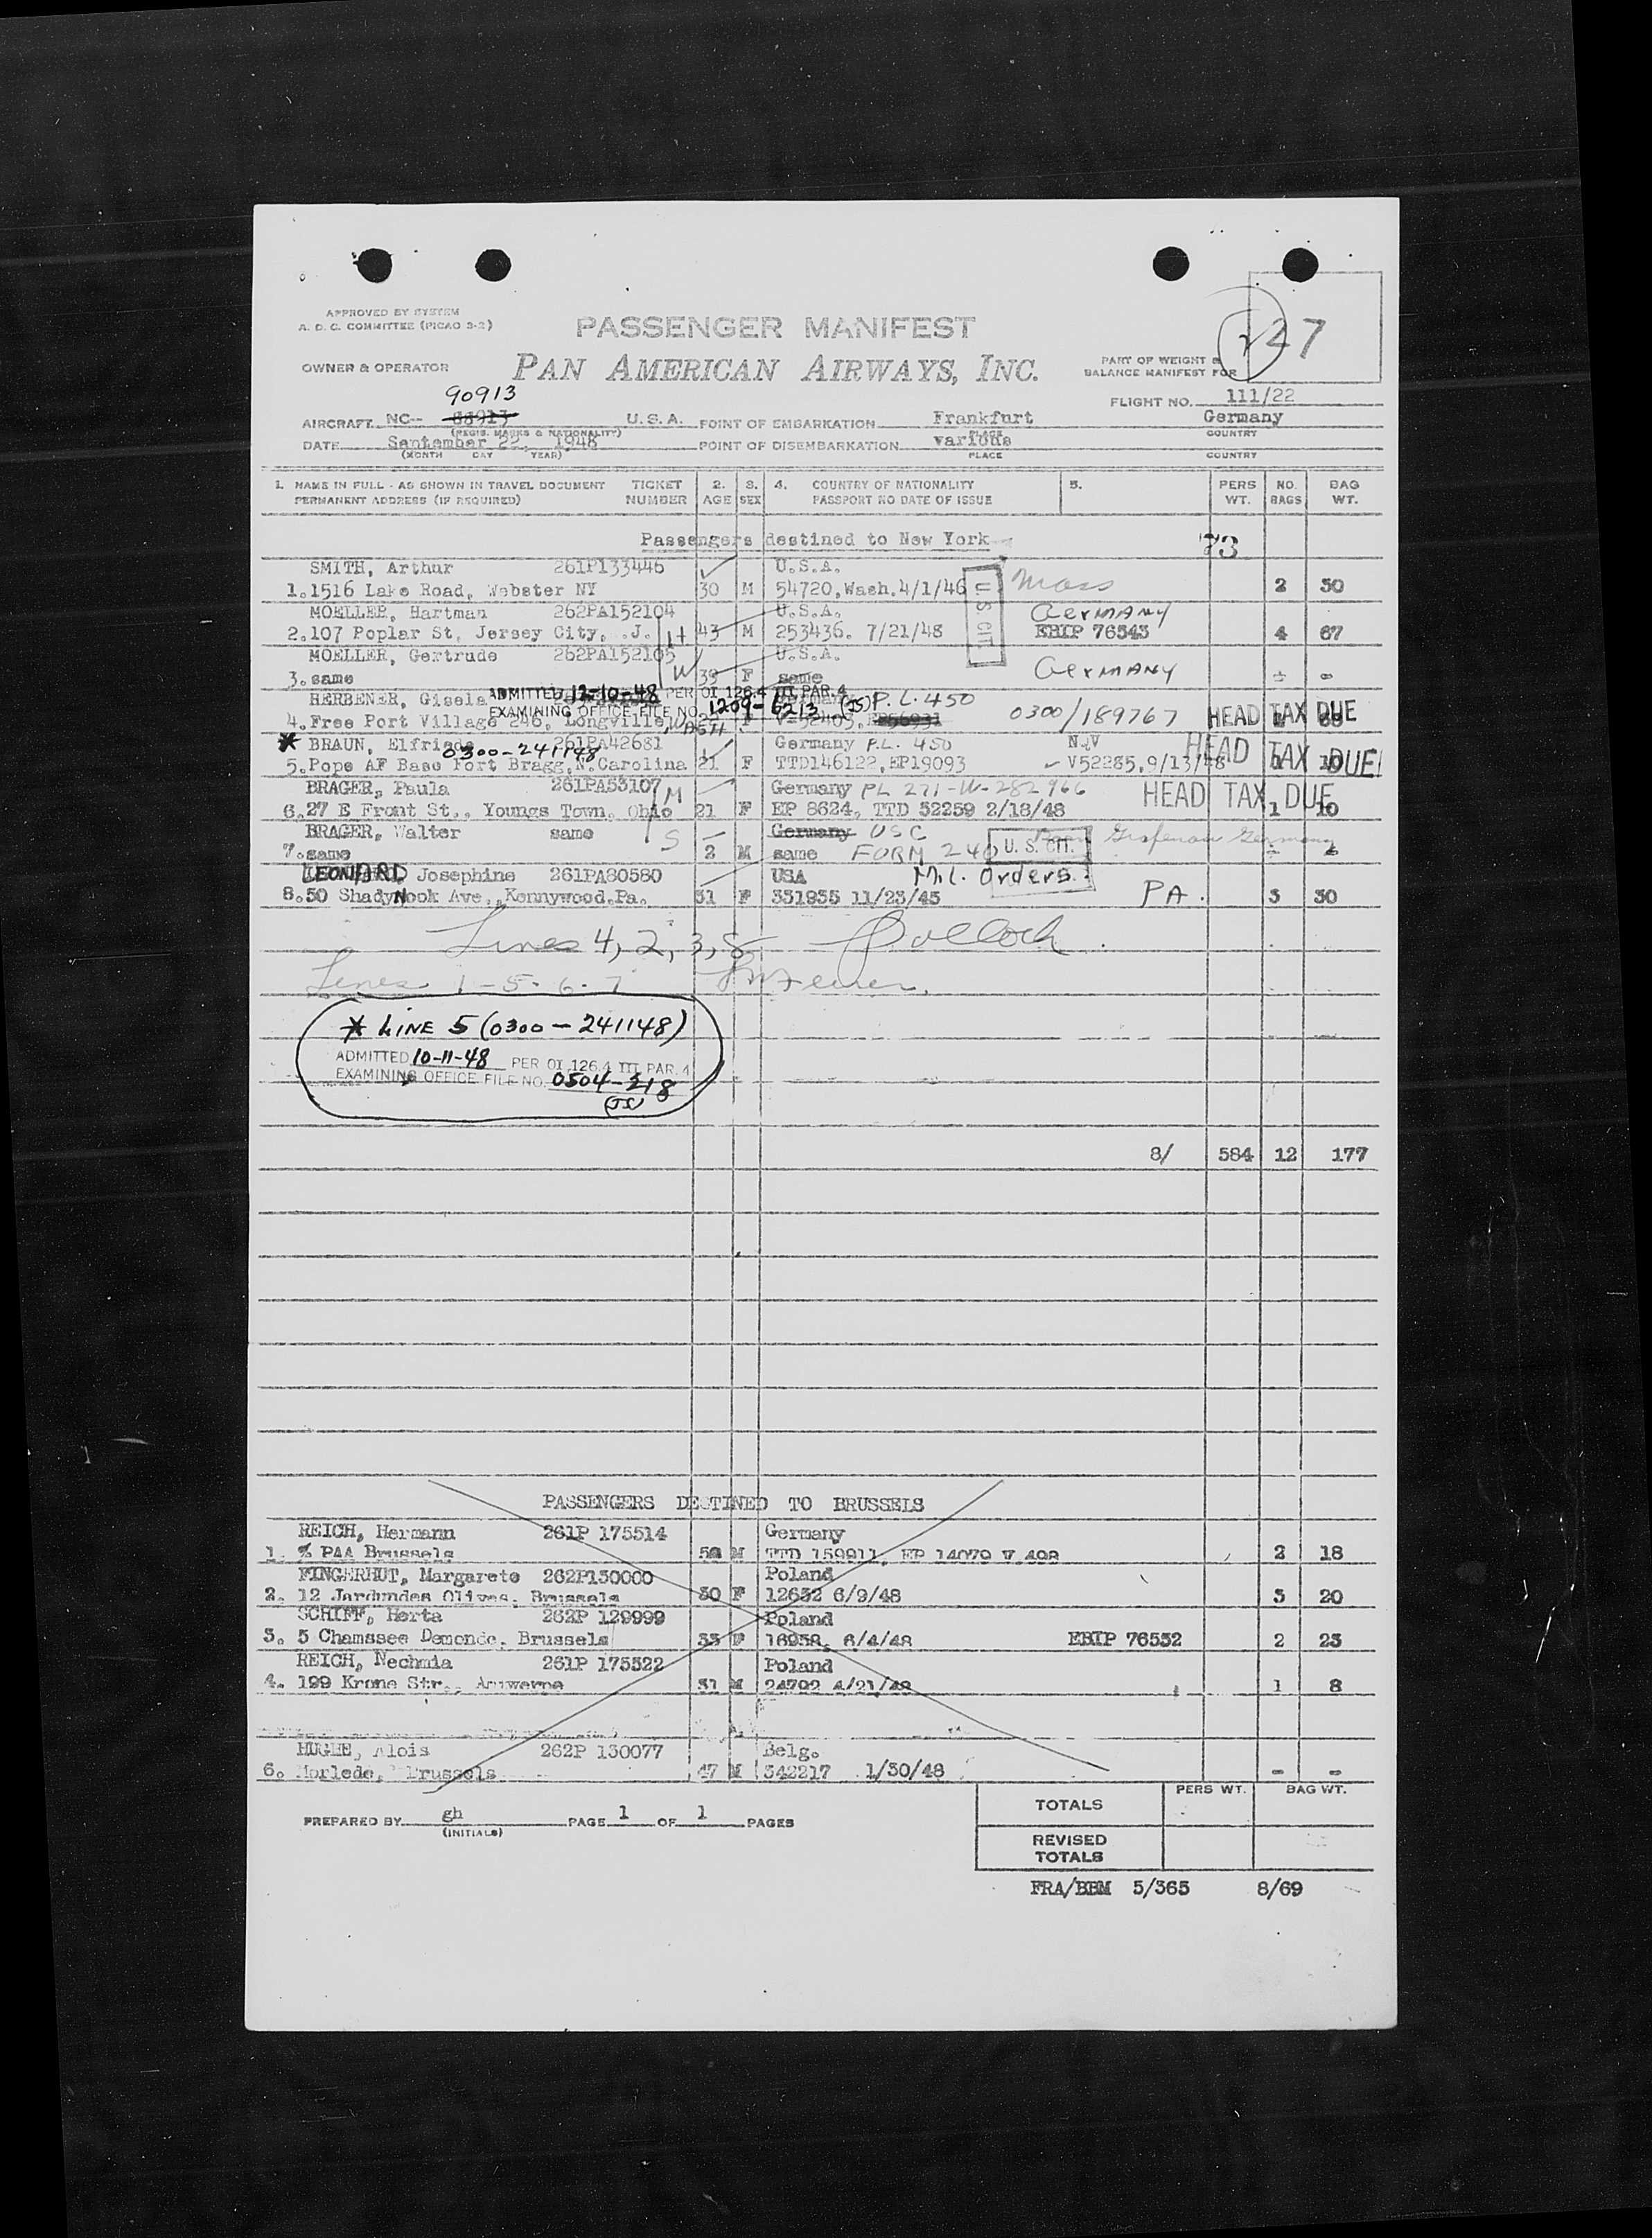 APPROVED BY SYSTEM
A. D. C. COMMITTEE (PICAO 3-2)
PASSENGER MANIFEST
227
OWNER & OPERATOR
PAN AMERICAN AIRWAYS, INC.
PART OF WEIGHT &
BALANCE MANIFEST FOR
90913
FLIGHT NO. 111/22
AIRCRAFT NC-- 88913 U.S.A. POINT OF EMBARKATION Frankfurt Germany
(REGIS. MARKS & NATIONALITY) PLACE COUNTRY
DATE September 22, 1948 POINT OF DISEMBARKATION various
(MONTH DAY YEAR) PLACE COUNTRY
1. NAME IN FULL - AS SHOWN IN TRAVEL DOCUMENT TICKET 2. 3. 4. COUNTRY OF NATIONALITY 5. PERS NO. BAG
PERMANENT ADDRESS (IF REQUIRED) NUMBER AGE SEX PASSPORT NO DATE OF ISSUE WT. BAGS WT.
Passengers destined to New York 73
SMITH, Arthur 261P133446 U.S.A.
1. 1516 Lake Road, Webster NY 30 M 54720, Wash. 4/1/46 U.S. CIT. Mass 2 30
MOELLER, Hartman 262PA152104 U.S.A. GERMANY
2. 107 Poplar St, Jersey City, .J. H 43 M 253436. 7/21/48 EBIP 76543 4 67
MOELLER, Gertrude 262PA152105 U.S.A.
3. same W 39 F same GERMANY - -
HERBENER, Gisela ADMITTED 12-10-48 PER OI 126.4 III PAR. 4 P.L. 450
EXAMINING OFFICE FILE NO. 1209-6213 (JS)
4. Free Port Village 246, Longville, WASH F V-52403, EP56931 0300/189767 HEAD TAX DUE
* BRAUN, Elfriede 261PA42681 Germany P.L. 450 NQV HEAD TAX DUE
0300-241148
5. Pope AF Base Fort Bragg, N. Carolina 21 F TTD146122, EP19093 V52285, 9/13/48 10
BRAGER, Paula 261PA53107 M Germany PL 271-W-282966 HEAD TAX DUE
6. 27 E Front St., Youngs Town, Ohio 21 F EP 8624, TTD 52259 2/18/48 1 10
BRAGER, Walter same S Germany USC
7. same 2 M same FORM 240 U. S. CIT. Germany
LEONARD, Josephine 261PA80580 USA Mil. Orders
8. 50 ShadyNook Ave., Kennywood, Pa. 31 F 331935 11/23/45 PA. 3 30
Lines 4, 2, 3, 8 Pollock
Lines 1-5-6-7
* LINE 5 (0300-241148)
ADMITTED 10-11-48 PER OI 126.4 III PAR. 4
EXAMINING OFFICE FILE NO. 0504-218
(JS)
8/ 584 12 177
PASSENGERS DESTINED TO BRUSSELS
REICH, Hermann 261P 175514 Germany
1. % PAA Brussels M TTD 159911, EP 14079 V 498 2 18
FINGERHUT, Margarete 262P130000 Poland
2. 12 Jardundes Olives, Brussels 30 F 12632 6/9/48 3 20
SCHIFF, Herta 262P 129999 Poland
3. 5 Chamssee Demonde, Brussels 33 F 16958, 6/4/48 EBIP 76532 2 23
REICH, Nechmia 261P 175522 Poland
4. 199 Krone Str., Anwerpe 31 M 24792 4/21/48 1 8
HUGHE, Alois 262P 130077 Belg.
6. Morlede, Brussels 47 M 342217 1/30/48 - -
PERS WT. BAG WT.
TOTALS
PREPARED BY gh PAGE 1 OF 1 PAGES
(INITIALS)
REVISED
TOTALS
FRA/BBM 5/365 8/69